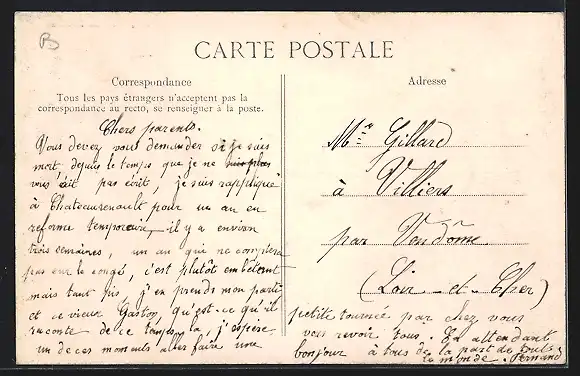 B
CARTE POSTALE
Correspondance
Tous les pays étrangers n'acceptent pas la
correspondance au recto, se renseigner à la poste.
Adresse
Chers parents.
Vous devez vous demander si je suis
mort depuis le temps que je ne
vous ait pas écrit, je suis rappliqué
à Chateaurenault pour un an en
reforme temporaire, il y a environ
trois semaines, un an qui ne comptera
pas sur le congé, c'est plutôt embêtant
mais tant pis, j'en prends mon parti
et ce vieux Gaston, qu'est-ce qu'il
raconte de ce temps-là, j'espère
un de ces moments aller faire une
petite tournée par chez vous
vous revoir tous. En attendant
bonjour à tous de la part de tout
le monde. Fernand
Mr Gillard
à Villiers
par Vendôme
(Loir-et-Cher)